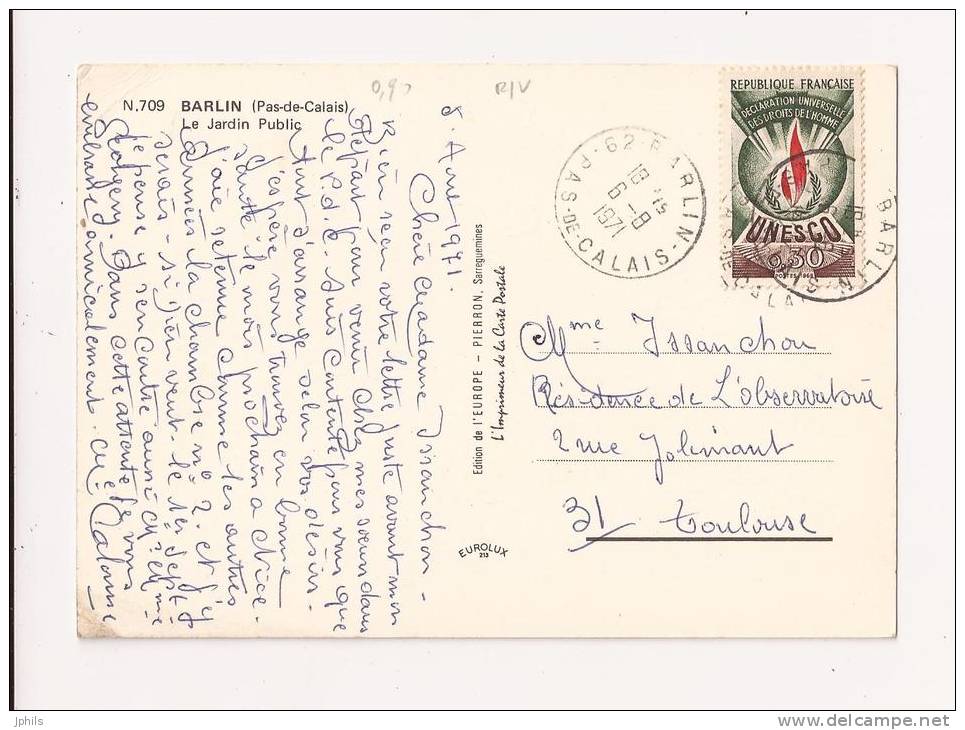 0,90
R/V
N.709 BARLIN (Pas-de-Calais)
Le Jardin Public
5. Aout 1971.
Chère Madame Issanchon -
Bien reçu votre lettre juste avant mon
départ pour venir chez mes soeurs dans
le P.d.C. suis contente pour vous que
tout s'arrange selon vos désirs.
J'espère vous trouver en bonne
santé le mois prochain a Nice.
J'aie retenue comme les autres
années la chambre nº 2. et j'y
serais - si Dieu veut - le 1er Sept
je pense y rencontré aussi
Dans cette attente je vous
embrasse amicalement.
Edition de l'EUROPE - PIERRON, Sarreguemines
L'Imprimeur de la Carte Postale
EUROLUX
213
62 - BARLIN - PAS-DE-CALAIS
18 H 15
6-8
1971
REPUBLIQUE FRANÇAISE
DÉCLARATION UNIVERSELLE
DES DROITS DE L'HOMME
UNESCO
0,30
POSTES 1969
BARLIN
Mme Issanchon
Résidence de L'Observatoire
2 rue Jolimont
31 Toulouse
jphils
http://www.delcampe.net